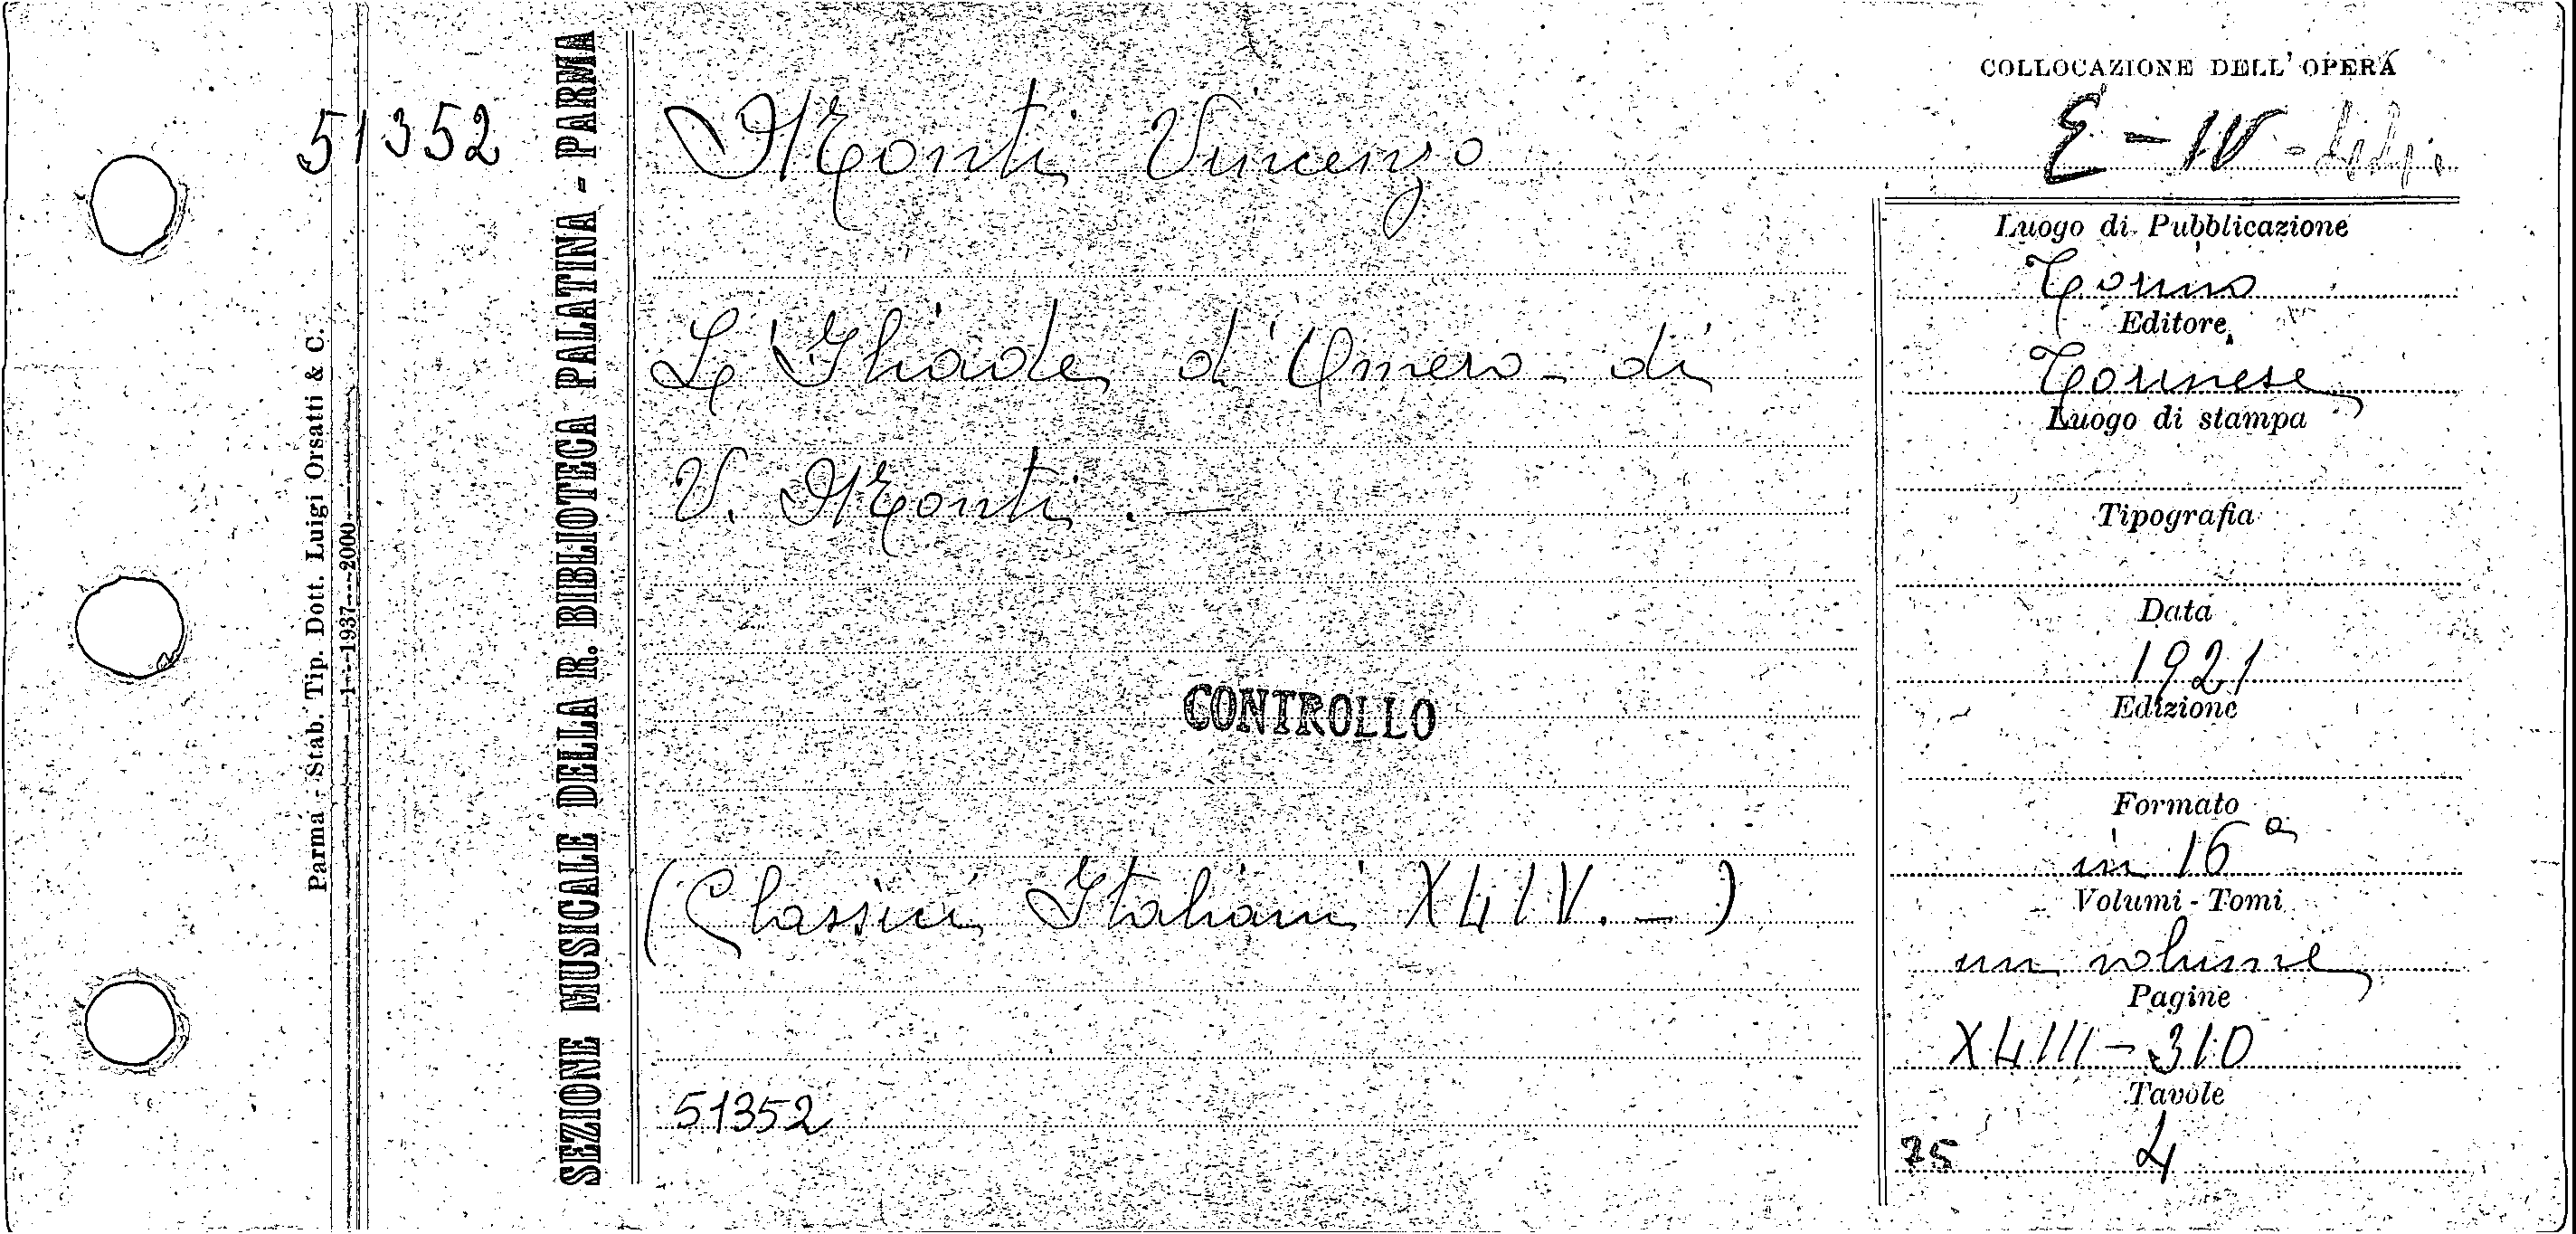 51352
Parma - Stab. Tip. Dott. Luigi Orsatti & C.
1-1937-2000
SEZIONE MUSICALE DELLA R. BIBLIOTECA PALATINA - PARMA
Monti Vincenzo
L'Iliade d'Omero - di
V. Monti. -
CONTROLLO
(Classici Italiani XLIV. - )
51352
COLLOCAZIONE DELL'OPERA
E - IV - 44.
Luogo di Pubblicazione
Torino
Editore
Torinese
Luogo di stampa
Tipografia
Data
1921
Edizione
Formato
in 16°
Volumi - Tomi
un volume
Pagine
XLIII - 310
Tavole
75 4